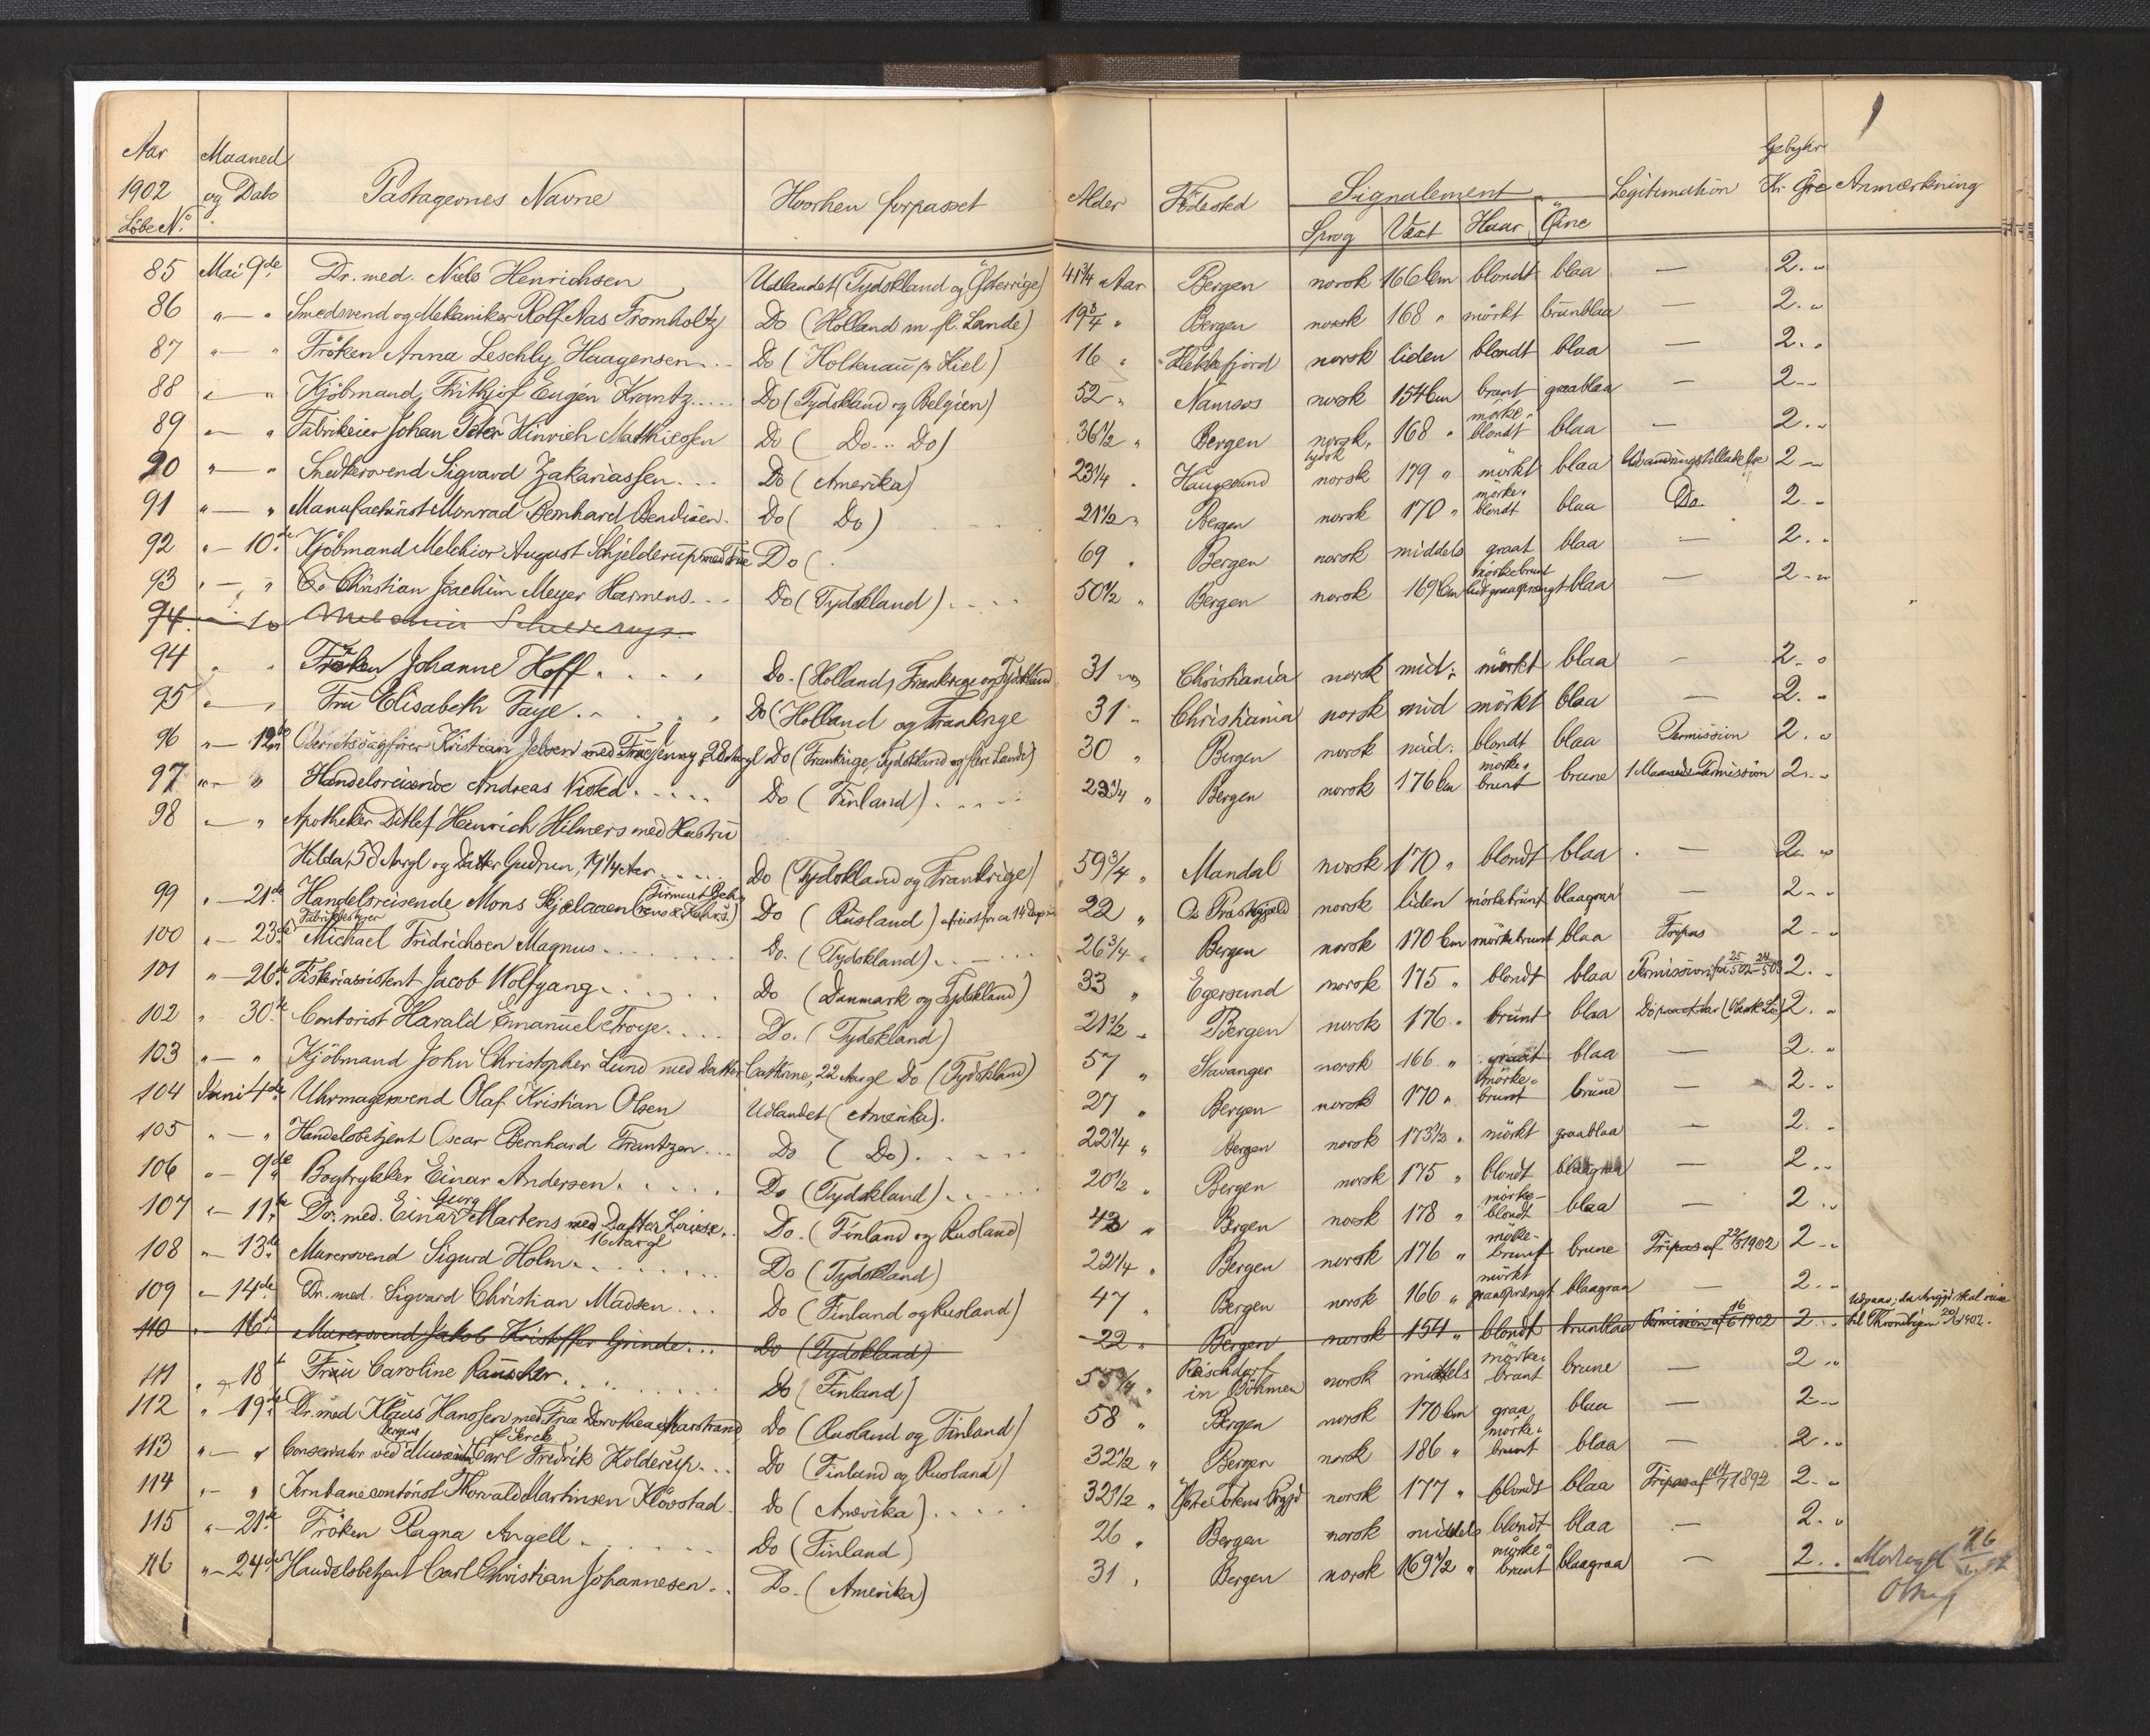 Aar Maaned Gebyhr
1902 og Dato Pastagernes Navne Hvorhen forpasset Alder Födested Signalement Legitimation Kr. Öre Anmærkning
Löbe No. Sprog Væxt Haar Öine
85 Mai 9de Dr. med. Niels Henrichsen Udlandet (Tydskland og Österrige) 41 3/4 Aar Bergen norsk 166 Cm blondt blaa — 2. "
86 " — " Smedsvend og Mekaniker Rolf Nas Fromholtz Do (Holland m. fl. Lande) 19 3/4 " Bergen norsk 168 " mörkt brunblaa — 2. "
87 " — " Fröken Anna Leschly Haagensen... Do (Holtenau pr Kiel) 16 " norsk liden blondt blaa — 2. "
88 " — " Kjöbmand Frithjof Eugén Krantz..... Do (Tydskland og Belgien) 52 " Namsos norsk 154 Cm brunt graablaa — 2 - -
89 " — " Fabrikeier Johan Peter Hinrich Matthiessen Do ( Do... Do) 36 1/2 " Bergen norsk, tydsk 168 " mörke-blondt blaa — 2. "
90 " — " Snedkersvend Sigvard Zakariassen... Do (Amerika) 23 1/4 " Haugesund norsk 179 " mörkt blaa Udvandringstilladelse 2 - "
91 " — " Manufacturist Monrad Bernhard Bendixen. Do ( Do) 21 1/2 " Bergen norsk 170 " mörke-blondt blaa Do 2. "
92 " — 10de Kjöbmand Melchior August Schjelderup med Frue Do ( 69 " Bergen norsk middels graat blaa — 2. "
93 " — " Do Christian Joachim Meyer Harmens... Do (Tydskland).... 50 1/2 " Bergen norsk 169 Cm mörkebrunt lidt graasprængt blaa — 2 - "
94. 10
94 " " Fröken Johanne Hoff.... Do. (Holland, Frankrige og Tydskland 31 " Christiania norsk mid: mörkt blaa — 2. "
95 " — " Fru Elisabeth Faye..... Do (Holland og Frankrige 31 " Christiania norsk mid mörkt blaa — 2. "
96 " — 12te Overretssagförer Kristian Jebsen med Frue Jenny, 28 Aargl Do (Frankrige, Tydskland og flere Lande) 30 " Bergen norsk mid: blondt blaa Permission 2. "
97 " — " Handelsreisende Andreas Nisted..... Do (Finland)..... 29 1/4 " Bergen norsk 176 Cm mörke-brunt brune 1 Maaneds Permission 2. "
98 " — " Apotheker Ditlef Heinrich Hilmers med Hustru
Hilda, 58 Aargl og Datter Gudrun, 19 1/4 Aar..... Do (Tydskland og Frankrige) 59 3/4 " Mandal norsk 170 " blondt blaa — 2. "
99 " — 21de Handelsreisende Mons Skjelaaen Do (Rusland) 22 " Os Præstegjeld norsk liden mörkebrunt blaagraa — 2 - "
100 " — 23de Fabrikbestyrer Michael Fridrichsen Magnus........ Do. (Tydskland)...... 26 3/4 " Bergen norsk 170 Cm mörkebrunt blaa Fripas 2 - "
101 " — 26de Fiskeriassistent Jacob Wolfgang...... Do (Danmark og Tydskland) 33 " Egersund norsk 175 " blondt blaa Permission fra 25/5 02 - 24/5 03 2. "
102 " 30te Contorist Harald Emanuel Troye.... Do. (Tydskland) 21 1/2 " Bergen norsk 176 " brunt blaa Do 2. "
103 " — " Kjöbmand John Christopher Lund med Datter Cathrine, 22 Aargl Do (Tydskland) 57 " Stavanger norsk 166 " graat blaa — 2. "
104 Juni 4de Uhrmagersvend Olaf Kristian Olsen Udlandet (Amerika). 27 " Bergen norsk 170 " mörke-brunt brune — 2. "
105 " — " Handelsbetjent Oscar Bernhard Frantzen... Do ( Do)..... 22 1/4 " Bergen norsk 173 1/2 " mörkt graablaa — 2. "
106 " — 9de Bogtrykker Einar Andersen...... Do (Tydskland)..... 20 1/2 " Bergen norsk 175 " blondt blaagraa — 2. "
107 " — 11te Dr. med. Einar Georg Martens med Datter Louise, 16 Aargl Do. (Finland og Rusland) 43 " Bergen norsk 178 " mörke-blondt blaa — 2 . "
108 " — 13de Murersvend Sigurd Holm........ Do (Tydskland) 22 1/4 " Bergen norsk 176 " mörke-brunt brune Fripas af 23/5 1902 2 - "
109 " — 14de Dr. med. Sigvard Christian Madsen... Do (Finland og Rusland) 47 " Bergen norsk 166 " mörkt graasprængt blaagraa — 2. "
110 " — 16de Murersvend Jakob Kristoffer Grinde... Do (Tydskland) 22 " Bergen norsk 154 " blondt brunblaa Permission af 16/6 1902 2. " Udgaar, da Angjd. skal reise til Throndhjem 20/6 1902.
111 " — 18 Fru Caroline Rauscher........ Do (Finland) 3/4 " Raischdorf in Böhmen norsk middels mörke-brunt brune — 2 "
112 " — 19de Dr. med Klaus Hanssen med Frue Dorothea Marstrand Do (Rusland og Finland) 58 " Bergen norsk 170 Cm graa blaa — 2 - -
113 " — " Conservator ved Bergens Museum Carl Fredrik Kolderup... Do (Finland og Rusland) 32 1/2 " Bergen norsk 186 " mörke-brunt blaa — 2 . "
114 " — " Jernbanecontorist Thorvald Martinsen Klövstad. Do (Amerika).... 32 1/2 " norsk 177 " blondt blaa Fripas af 14/7 1892 2 - "
115 " — 21de Fröken Ragna Angell....... Do (Finland) 26 " Bergen norsk middels blondt blaa — 2. "
116 " — 24de Handelsbetjent Carl Christian Johannesen.. Do. (Amerika) 31 " Bergen norsk 169 1/2 " mörke-brunt blaagraa — 2. " Modtaget 26/6 02